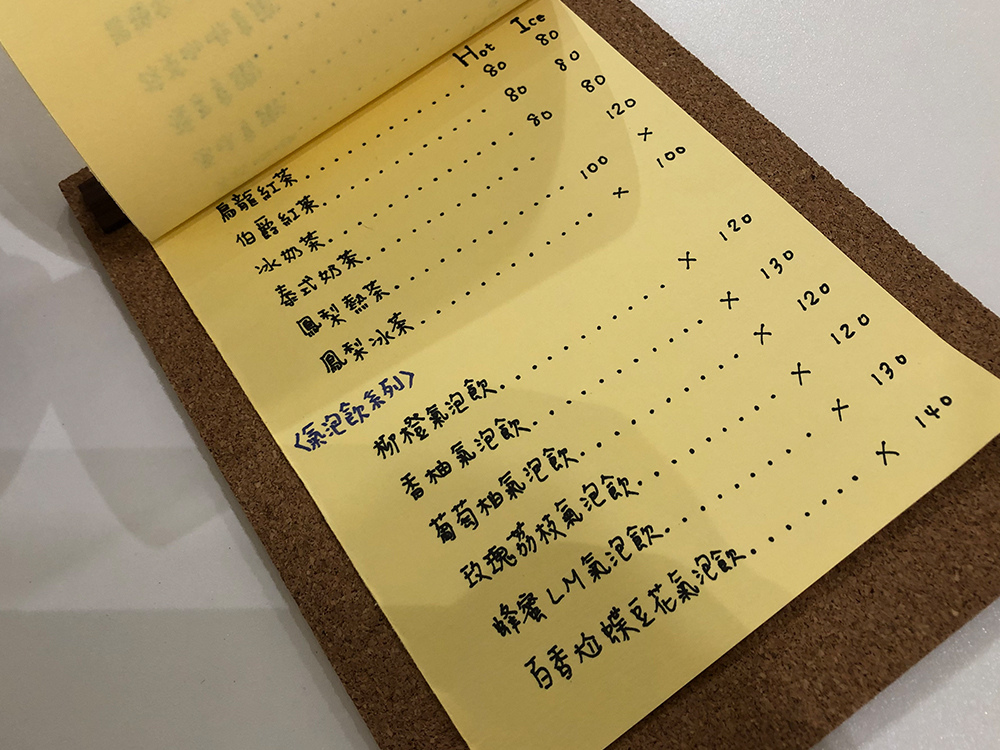 Hot Ice
烏龍紅茶.................... 80 80
伯爵紅茶.................... 80 80
冰奶茶...................... 80 80
泰式奶茶.................... 120
鳳梨熱茶.................... 100 ×
鳳梨冰茶.................... × 100
〈氣泡飲系列〉
柳橙氣泡飲............. × 120
香柚氣泡飲............. × 130
葡萄柚氣泡飲........... × 120
玫瑰荔枝氣泡飲......... × 120
蜂蜜LM氣泡飲.......... × 130
百香尬蝶豆花氣泡飲...... × 140